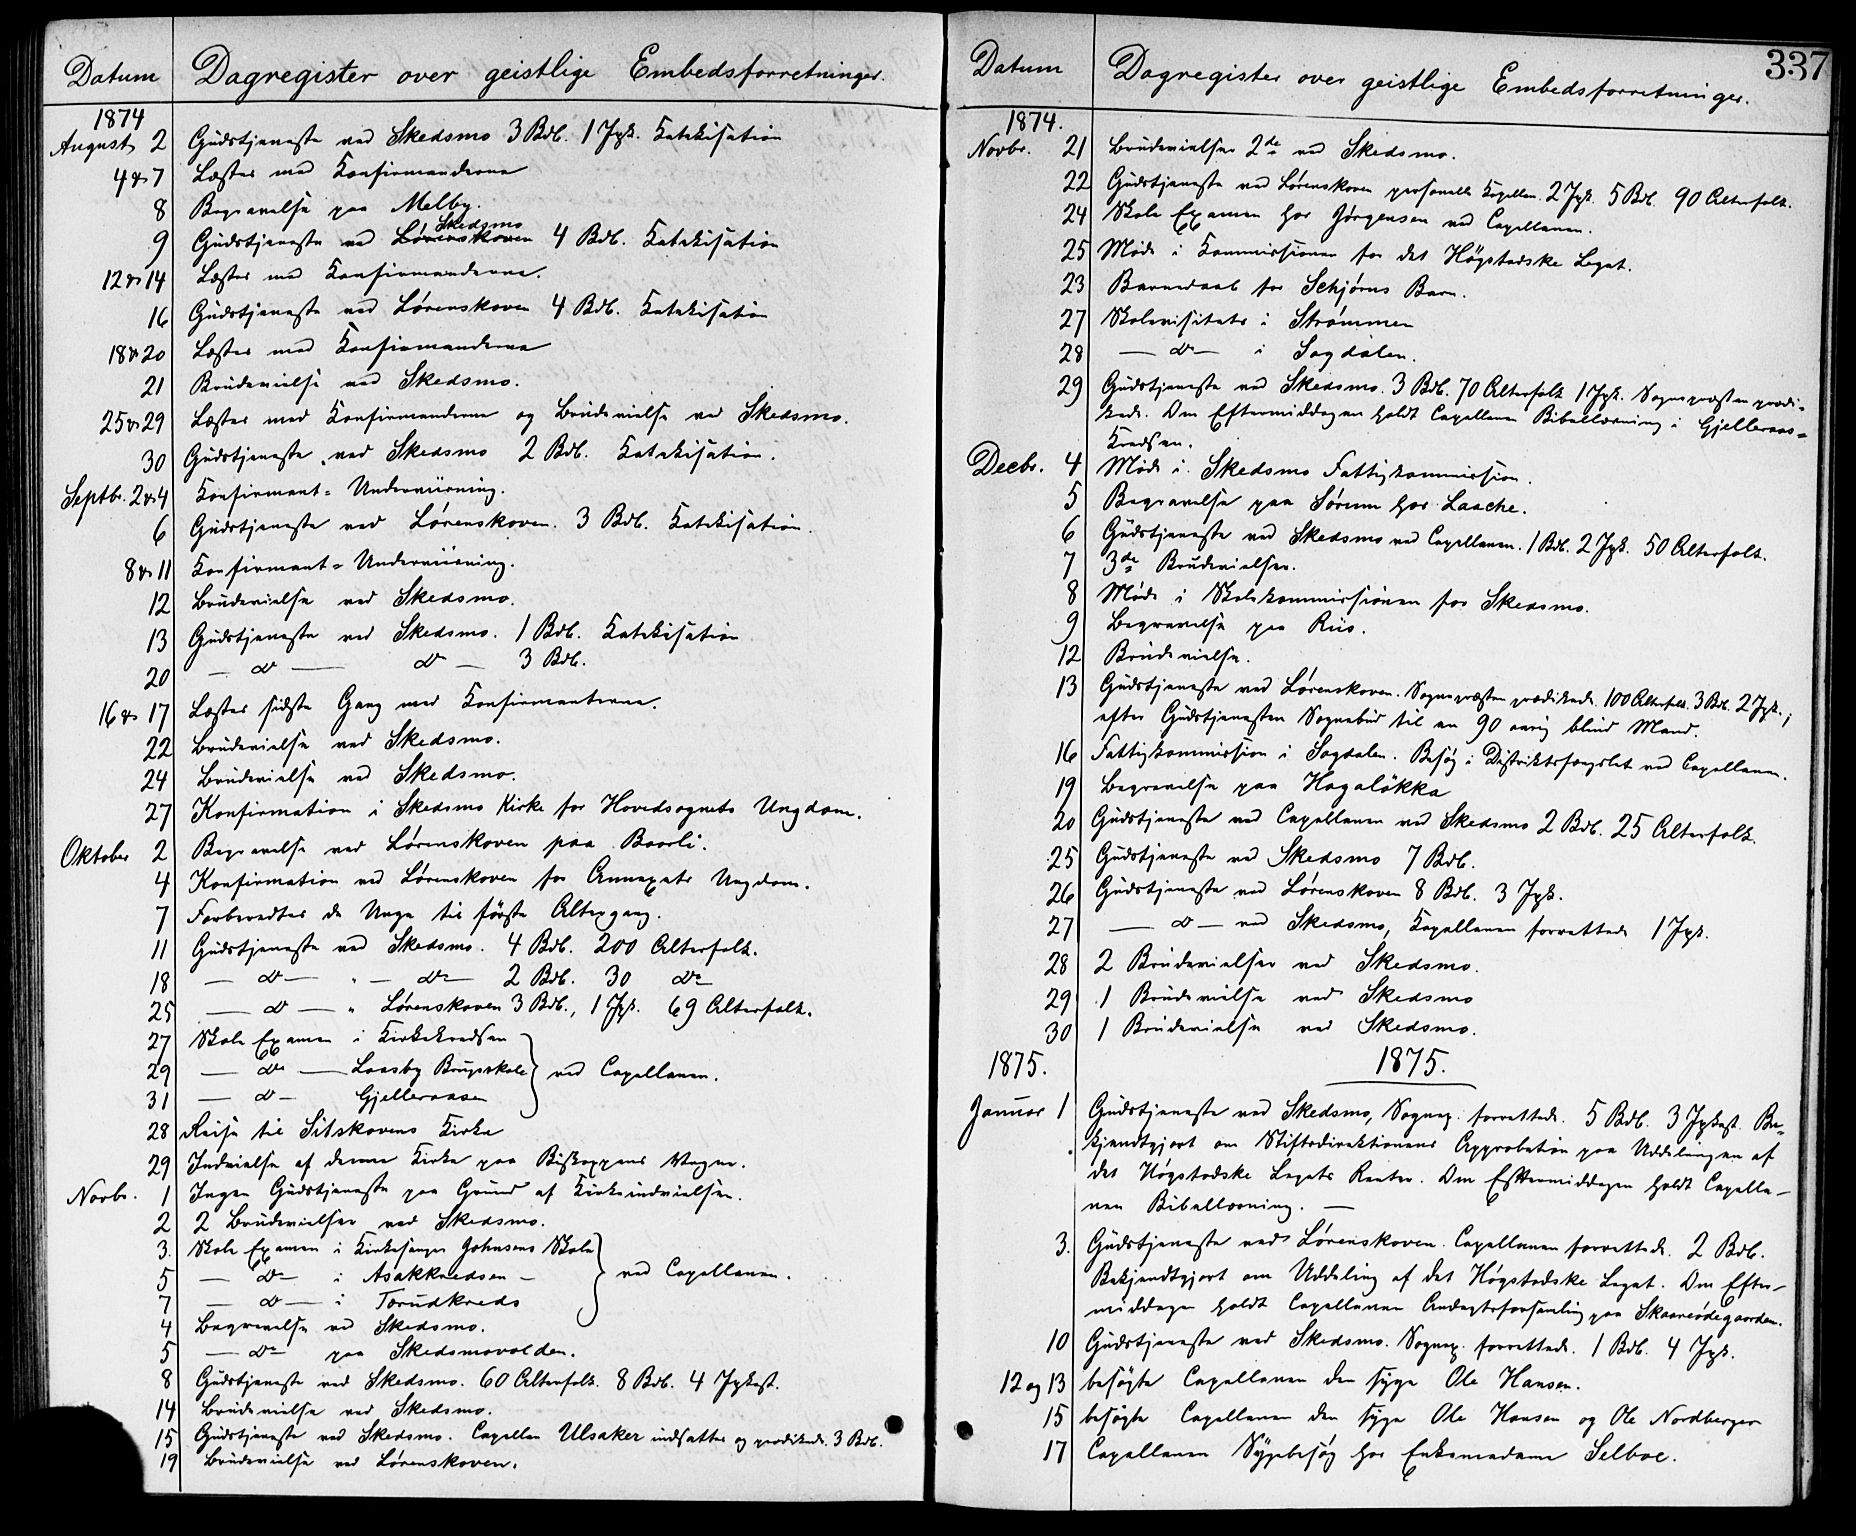 Datum Dagregister over geistlige Embedsforretninger.
1874
August 2 Gudstjeneste ved Skedsmo 3 Bdb. 1 Jgk. Katekisation
4 & 7 Læstes med Konfirmanderne
8 Begravelse paa Melby.
Skedsmo
9 Gudstjeneste ved Lørenskoven 4 Bdb. Katekisation
12 & 14 Læstes med Konfirmanderne.
16 Gudstjeneste ved Lørenskoven 4 Bdb. Katekisation
18 & 20 Læstes med Konfirmanderne
21 Brudevielse ved Skedsmo.
25 & 29 Læstes med Konfirmanderne og Brudevielse ved Skedsmo.
30 Gudstjeneste ved Skedsmo 2 Bdb. Katekisation.
Septbr. 2 & 4 Konfirmant-Underviisning.
6 Gudstjeneste ved Lørenskoven. 3 Bdb. Katekisation.
8 & 11 Konfirmant-Underviisning.
12 Brudevielse ved Skedsmo.
13 Gudstjeneste ved Skedsmo. 1 Bdb. Katekisation
20 — do — do — 3 Bdb.
16 & 17 Læstes sidste Gang med Konfirmanterne.
22 Brudevielse ved Skedsmo.
24 Brudevielse ved Skedsmo.
27 Konfirmation i Skedsmo Kirke for Hovedsognets Ungdom.
Oktober 2 Begravelse ved Lørenskoven paa Baarli.
4 Konfirmation ved Lørenskoven for Annexets Ungdom.
7 Forberedtes de Unge til første Altergang.
11 Gudstjeneste ved Skedsmo. 4 Bdb. 200 Alterfolk.
18 — do — " — do — 2 Bdb. 30 do
25 — do — " Lørenskoven 3 Bdb., 1 Jgk. 69 Alterfolk.
27 Skole Examen i Kirkekredsen
29 — do — Laasby Brugsskole } ved Capellanen.
31 — do — Gjelleraasen
28 Reise til Sitskovens Kirke
29 Indvielse af denne Kirke paa Biskoppens Vegne.
Novbr. 1 Ingen Gudstjeneste paa Grund af Kirkeindvielsen.
2 2 Brudevielser ved Skedsmo.
3. Skole Examen i Kirkesanger Johnsens Skole
5 — do — i Asakkredsen — } ved Capellanen.
7 — do — i Torudkreds
4 Begravelse ved Skedsmo.
5 — do — paa Skedsmovolden.
8 Gudstjeneste ved Skedsmo. 60 Alterfolk. 8 Bdb. 4 Jgkst.
14 Brudevielse ved Skedsmo.
15 Gudstjeneste ved Skedsmo. Capellan Ulsaker indsattes og prædikede. 3 Bdb.
19 Brudevielse ved Lørenskoven.
337
Datum Dagregister over geistlige Embedsforretninger.
1874.
Novbr. 21 Brudevielser 2de ved Skedsmo.
22 Gudstjeneste ved Lørenskoven personelle Kapellan. 2 Jgk. 5 Bdb. 90 Alterfolk.
24 Skole Examen hos Jørgensen ved Capellanen.
25 Møde i Kommissionen for det Høgstadske Legat.
23 Barnedaab for Schjørns Barn.
27 Skolevisitats i Strømmen
28 — do — i Sagdalen.
29 Gudstjeneste ved Skedsmo. 3 Bdb. 70 Alterfolk 1 Jgk. Sognepræsten prædi-
kede. Om Eftermiddagen holdt Capellanen Bibellæsning i Gjelleraas-
Kredsen.
Decbr. 4 Møde i Skedsmo Fattigkommission.
5 Begravelse paa Sørum hos Laache.
6 Gudstjeneste ved Skedsmo ved Capellanen. 1 Bdb. 2 Jgk. 50 Alterfolk.
7 3de Brudevielser.
8 Møde i Skolekommissionen for Skedsmo.
9 Begravelse paa Riis.
12 Brudevielse.
13 Gudstjeneste ved Lørenskoven. Sognepræsten prædikede. 100 Alterfolk. 3 Bdb. 2 Jgk.;
efter Gudstjenesten Sognebud til en 90 aarig blind Mand.
16 Fattigkommission i Sagdalen. Besøg i Distriktsfængslet ved Capellanen.
19 Begravelse paa Hagaløkka
20 Gudstjeneste ved Capellanen ved Skedsmo 2 Bdb. 25 Alterfolk.
25 Gudstjeneste ved Skedsmo 7 Bdb.
26 Gudstjeneste ved Lørenskoven 8 Bdb. 3 Jgk.
27 — do — ved Skedsmo, Kapellanen forrettede 1 Jgk.
28 2 Brudevielser ved Skedsmo.
29 1 Brudevielse ved Skedsmo
30 1 Brudevielse ved Skedsmo.
1875. 1875.
Januar 1 Gudstjeneste ved Skedsmo, Sognep. forrettede. 5 Bdb. 3 Jgkst. Be-
kjendtgjort om Stiftsdirektionens Approbation paa Uddelingen af
det Høgstadske Legats Renter. Om Eftermiddagen holdt Capella-
nen Bibellæsning. —
3. Gudstjeneste ved Lørenskoven. Capellanen forrettede. 2 Bdb.
Bekjendtgjort om Uddeling af det Høgstadske Legat. Om Efter-
middagen holdt Capellanen Andagtsforsamling paa Skaareødegaarden.
10 Gudstjeneste ved Skedsmo. Sognep. forrettede. 1 Bdb. 4 Jgk.
12 og 13 besøgte Capellanen den syge Ole Hansen.
15 besøgte Capellanen den syge Ole Hansen og Ole Nordberger
17 Capellanen Sygebesøg hos Enkemadame Selboe.